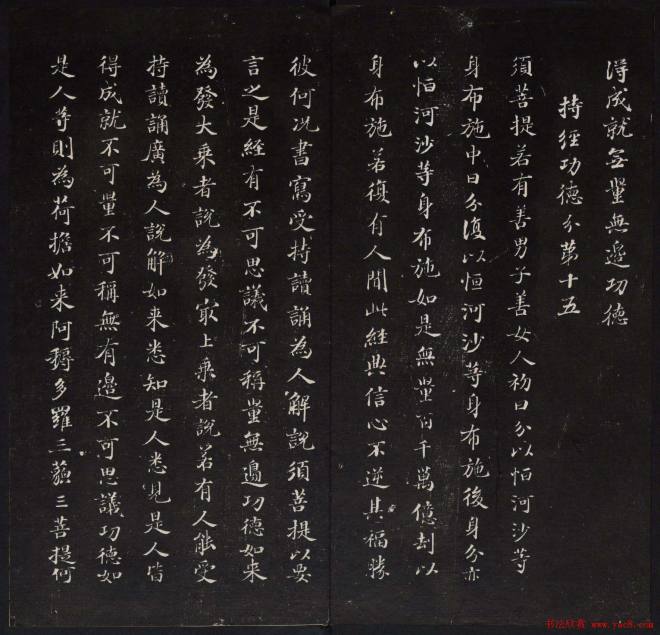 得成就無量無邊功德
持經功德分第十五
須菩提若有善男子善女人初日分以恒河沙等
身布施中日分復以恒河沙等身布施後身分亦
以恒河沙等身布施如是無量百千萬億劫以
身布施若復有人聞此經典信心不逆其福勝
彼何況書寫受持讀誦為人解說須菩提以要
言之是經有不可思議不可稱量無邊功德如來
為發大乘者說為發最上乘者說若有人能受
持讀誦廣為人說解如来悉知是人悉見是人皆
得成就不可量不可稱無有邊不可思議功德如
是人等則為荷擔如来阿耨多羅三藐三菩提何
书法欣赏 www.yac8.com